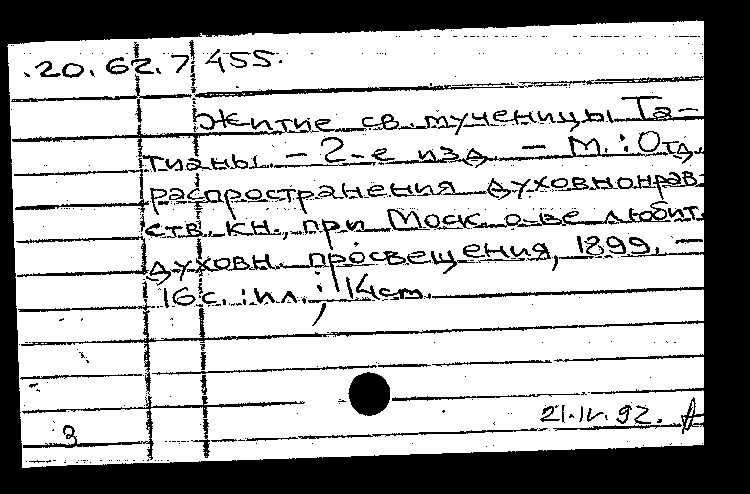 .20.62.7 455.
Житие св. мученицы Та-
тианы. – 2-е изд. – М. : Отд.
распространения духовнонрав-
ств. кн., при Моск. о-ве любит.
духовн. просвещения, 1899. –
16 с. : ил. ; 14 см.
21.IV.92.
3